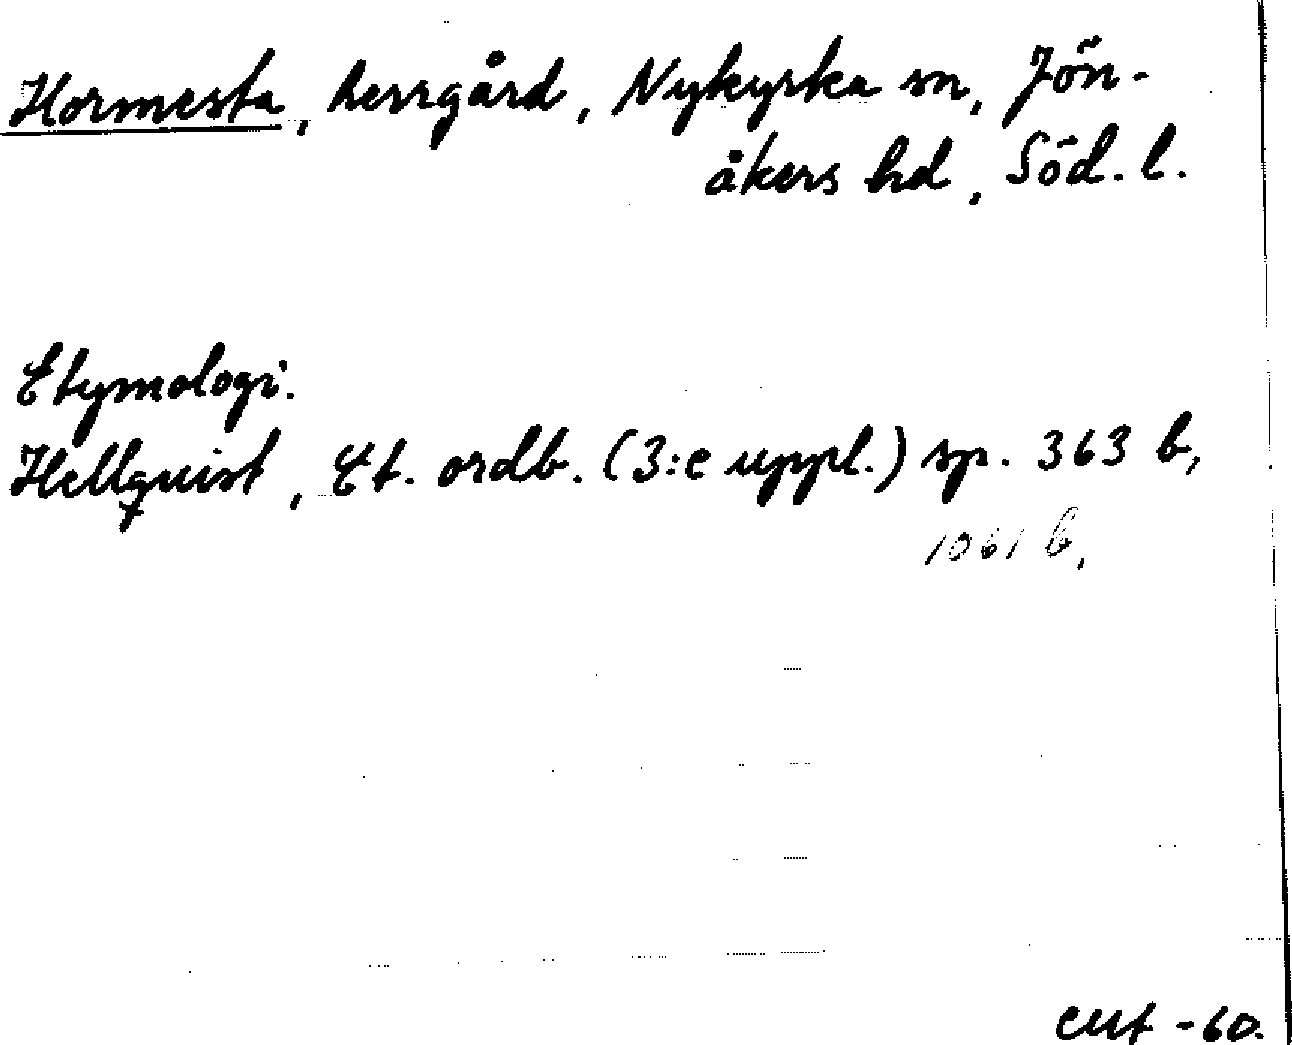 Hormesta, herrgård, Nykyrka sn, Jön-
åkers hd, Söd. l.
Etymologi.
Hellquist, Et. ordb. (3:e uppl.) sp. 363 b,
1061 b,
-60.